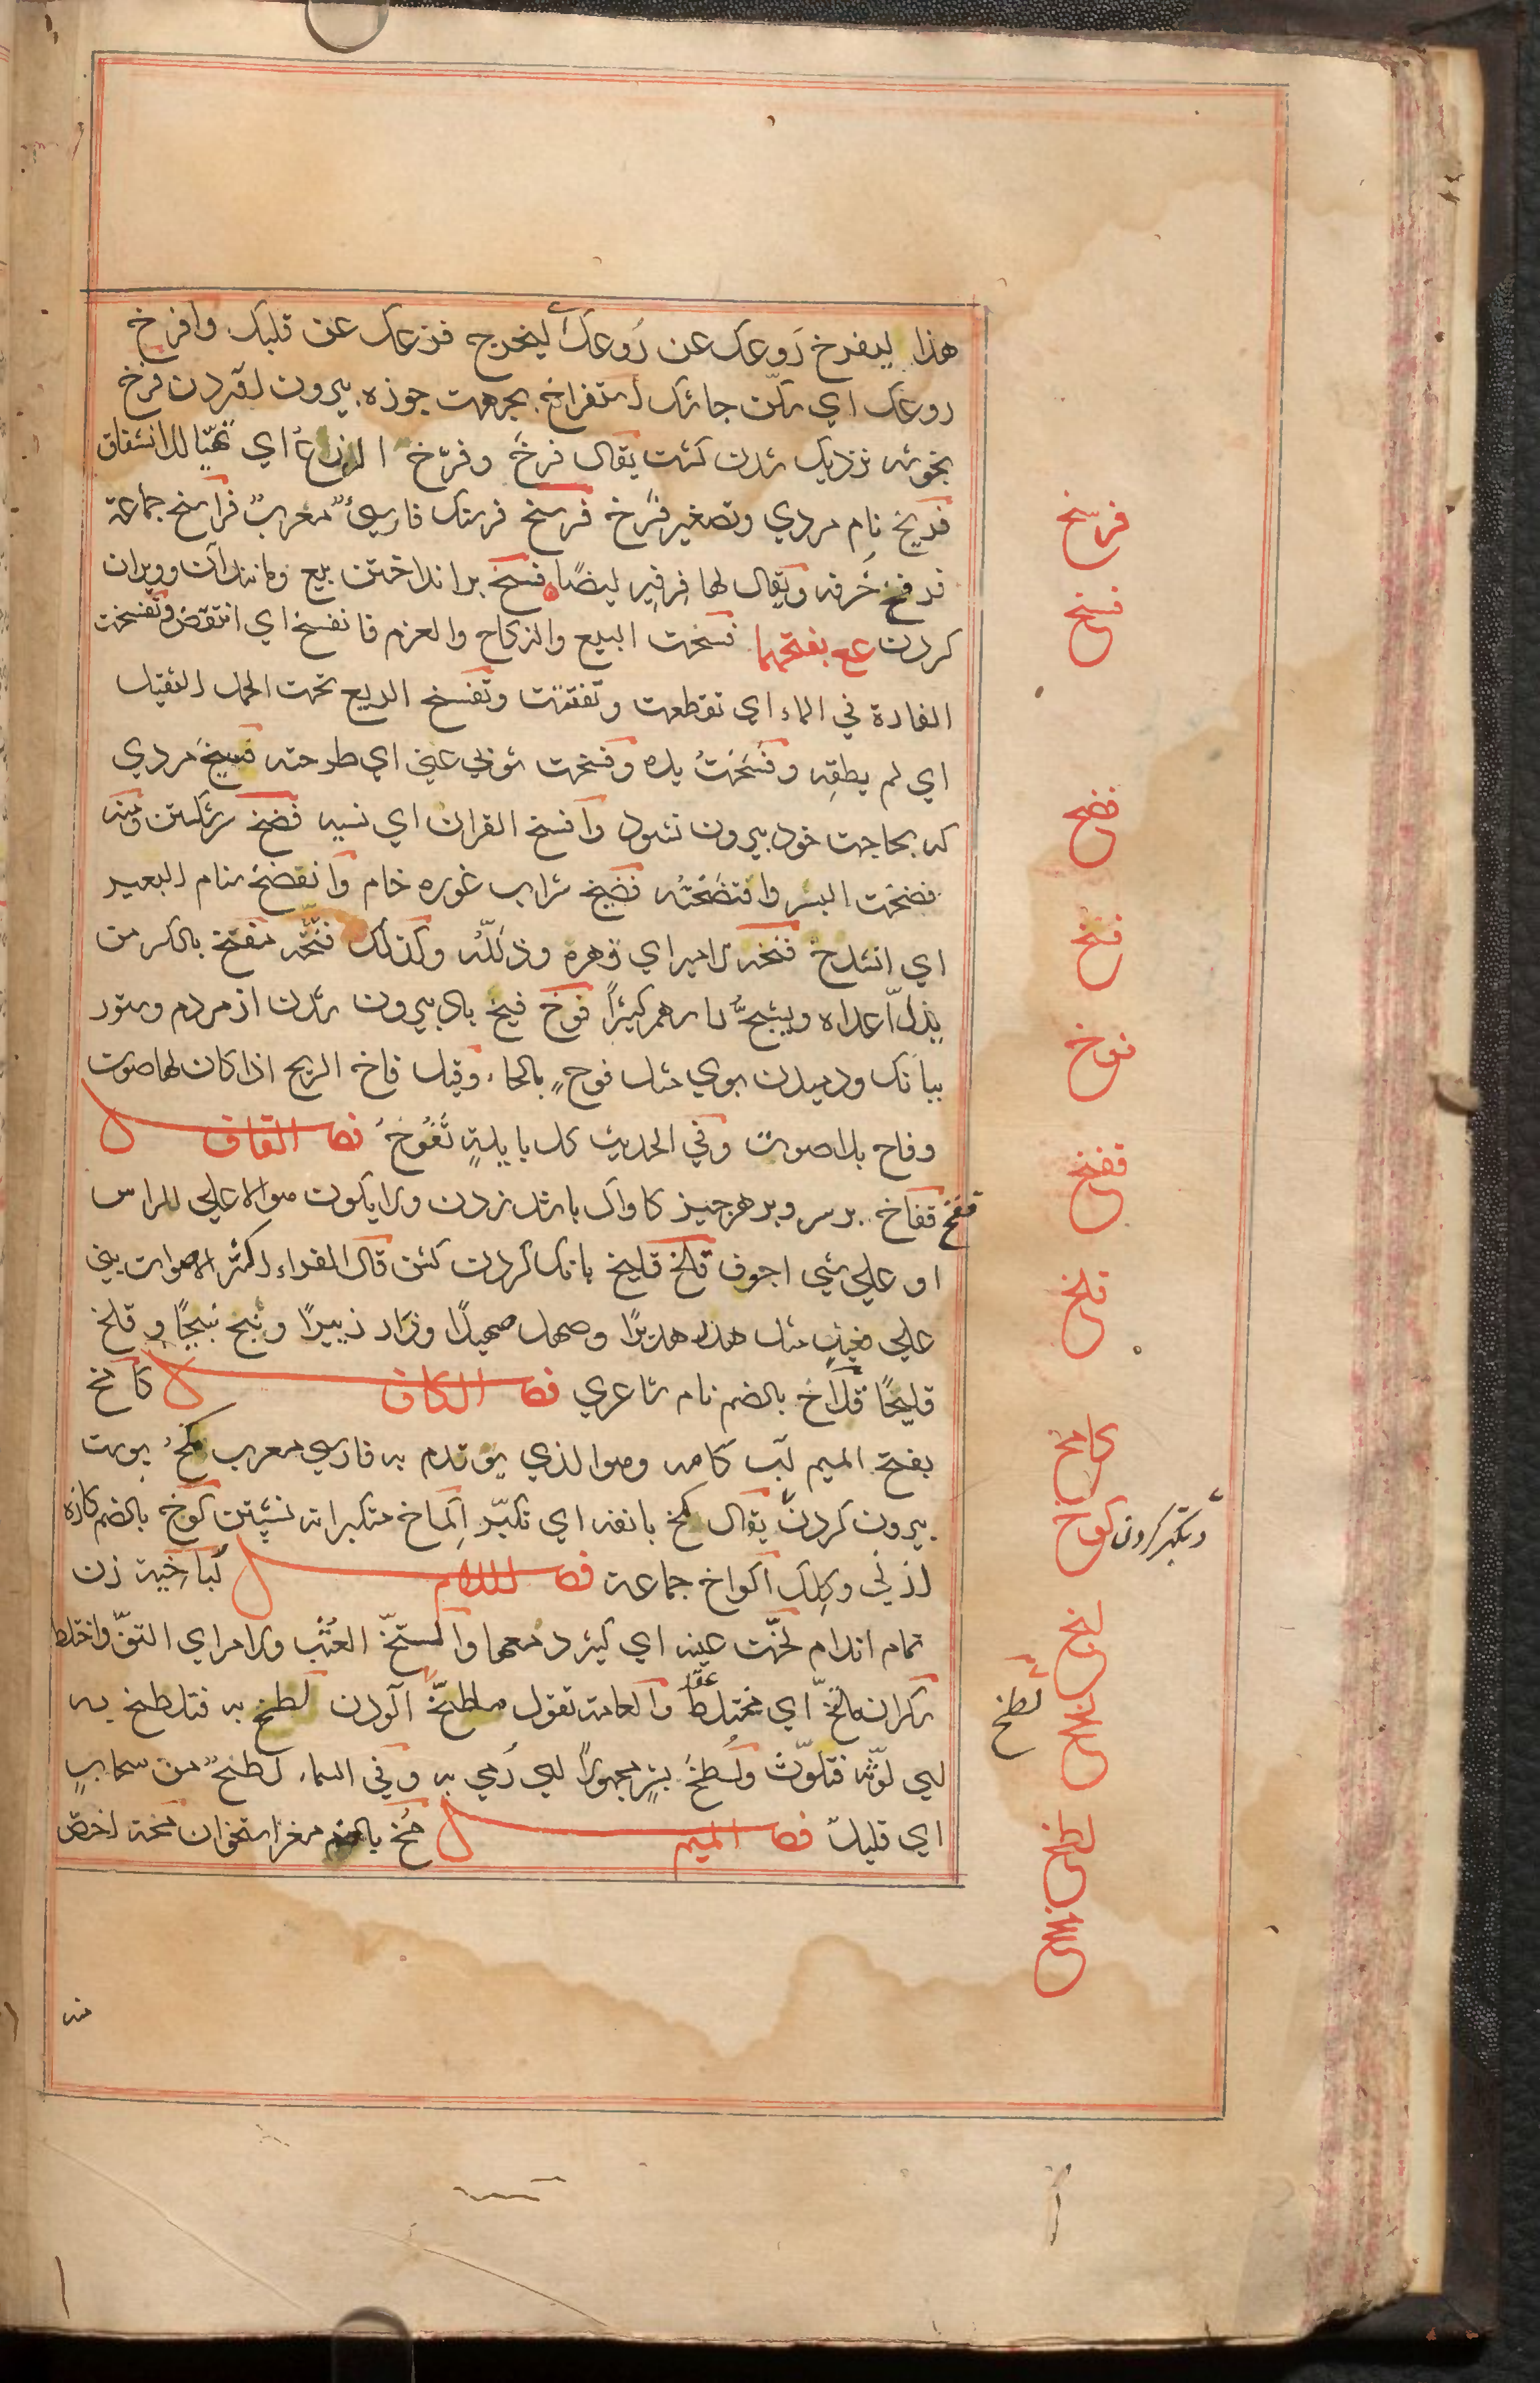 هذا ليفرخ رَوعك عن رُوعك أي ليخرج فزعك عن قلبك وافرخ
روعك اي سكّن جاشك استفراخ بجهت جوزه بيرون آوردن فرخ
بخوشه نزديك شدن كشت يقال فرخ وفرّخ الزرع اي تهيّا للانشقاق
فريخ نام مردي وتصغير فرخ فرسخ فرسنك فارسيٌّ معربٌ فراسخ جماعة
فرفخ خرفه ويقال لها فرفير ايضًا فسخ برانداختن بيع ومانند آن وويران
كردن ع بفتحهما فسخت البيع والنكاح والعزم فانفسخ اي انتقض وتفسخت
الفارة في الماء اي تقطعت وتفتتت وتفسخ الربع تحت الحمل الثقيل
اي لم يطقه وفسخت يده وفسخت ثوبي عني اي طرحته فسيخ مردي
كه بحاجت خود بيرون نشود وافسخ القران اي نسيه فضخ شكستن ومنه
فضخت البسر وافتضخته فضيخ شراب غوره خام وانفضخ سنام البعير
اي انشدخ فنخه الامر اي قهره وذلّله وكذلك فنّخه مفنخ بالكسر من
يذلّ اعداه ويشجّ راسهم كثيرًا فوخ فيخ باد بيرون شدن از مردم وستور
ببانك ودميدن بوي مثل فوح بالحاء وقيل فاخ الريح اذا كان لها صوت
وفاح بلا صوت وفي الحديث كل بايلة تفوخ فصل القاف
قفخ قفاخ بر سر وبر هر چيز كاواك باشد زدن ولا يكون الا على الراس
او على شي اجوف قلخ قليخ بانك كردن كشن قال الفراء اكثر الاصوات بني
على فعيل مثل هدر هديرًا وصهل صهيلًا وزار زئيرًا ونبح نبيحًا وقلخ
قليخًا قلاخ بالضم نام شاعري فصل الكاف كامخ
بفتح الميم لب كامه وهو الذي يؤتدم به فارسي معرب كمخ پوست
بيرون كردن يقال كمخ بانفه اي تكبّر اكماخ متكبرانه نشستن كوخ بالضم كازه
از ني وكلك اكواخ جماعة فصل اللام لباخية زن
تمام اندام لخّت عينه اي كثر دمعها والتخّ العشب والامر اي التفّ واختلط
سكران ملتخّ اي مختلط عقله والعامة تقول ملطخّ آلودن لطخ به فتلطخ به
اي لوّثه فتلوّث ولطخ بشر مجهولًا اي رمي به وفي السماء لطخ من سحاب
اي قليل فصل الميم مخ بالضم مغز استخوان مخة اخص
فرسخ
فسخ
فضخ
فنخ
فوخ
قفخ
قلخ
كامخ
كوخ
وتكبر كردن
لخخ
لطخ
منه